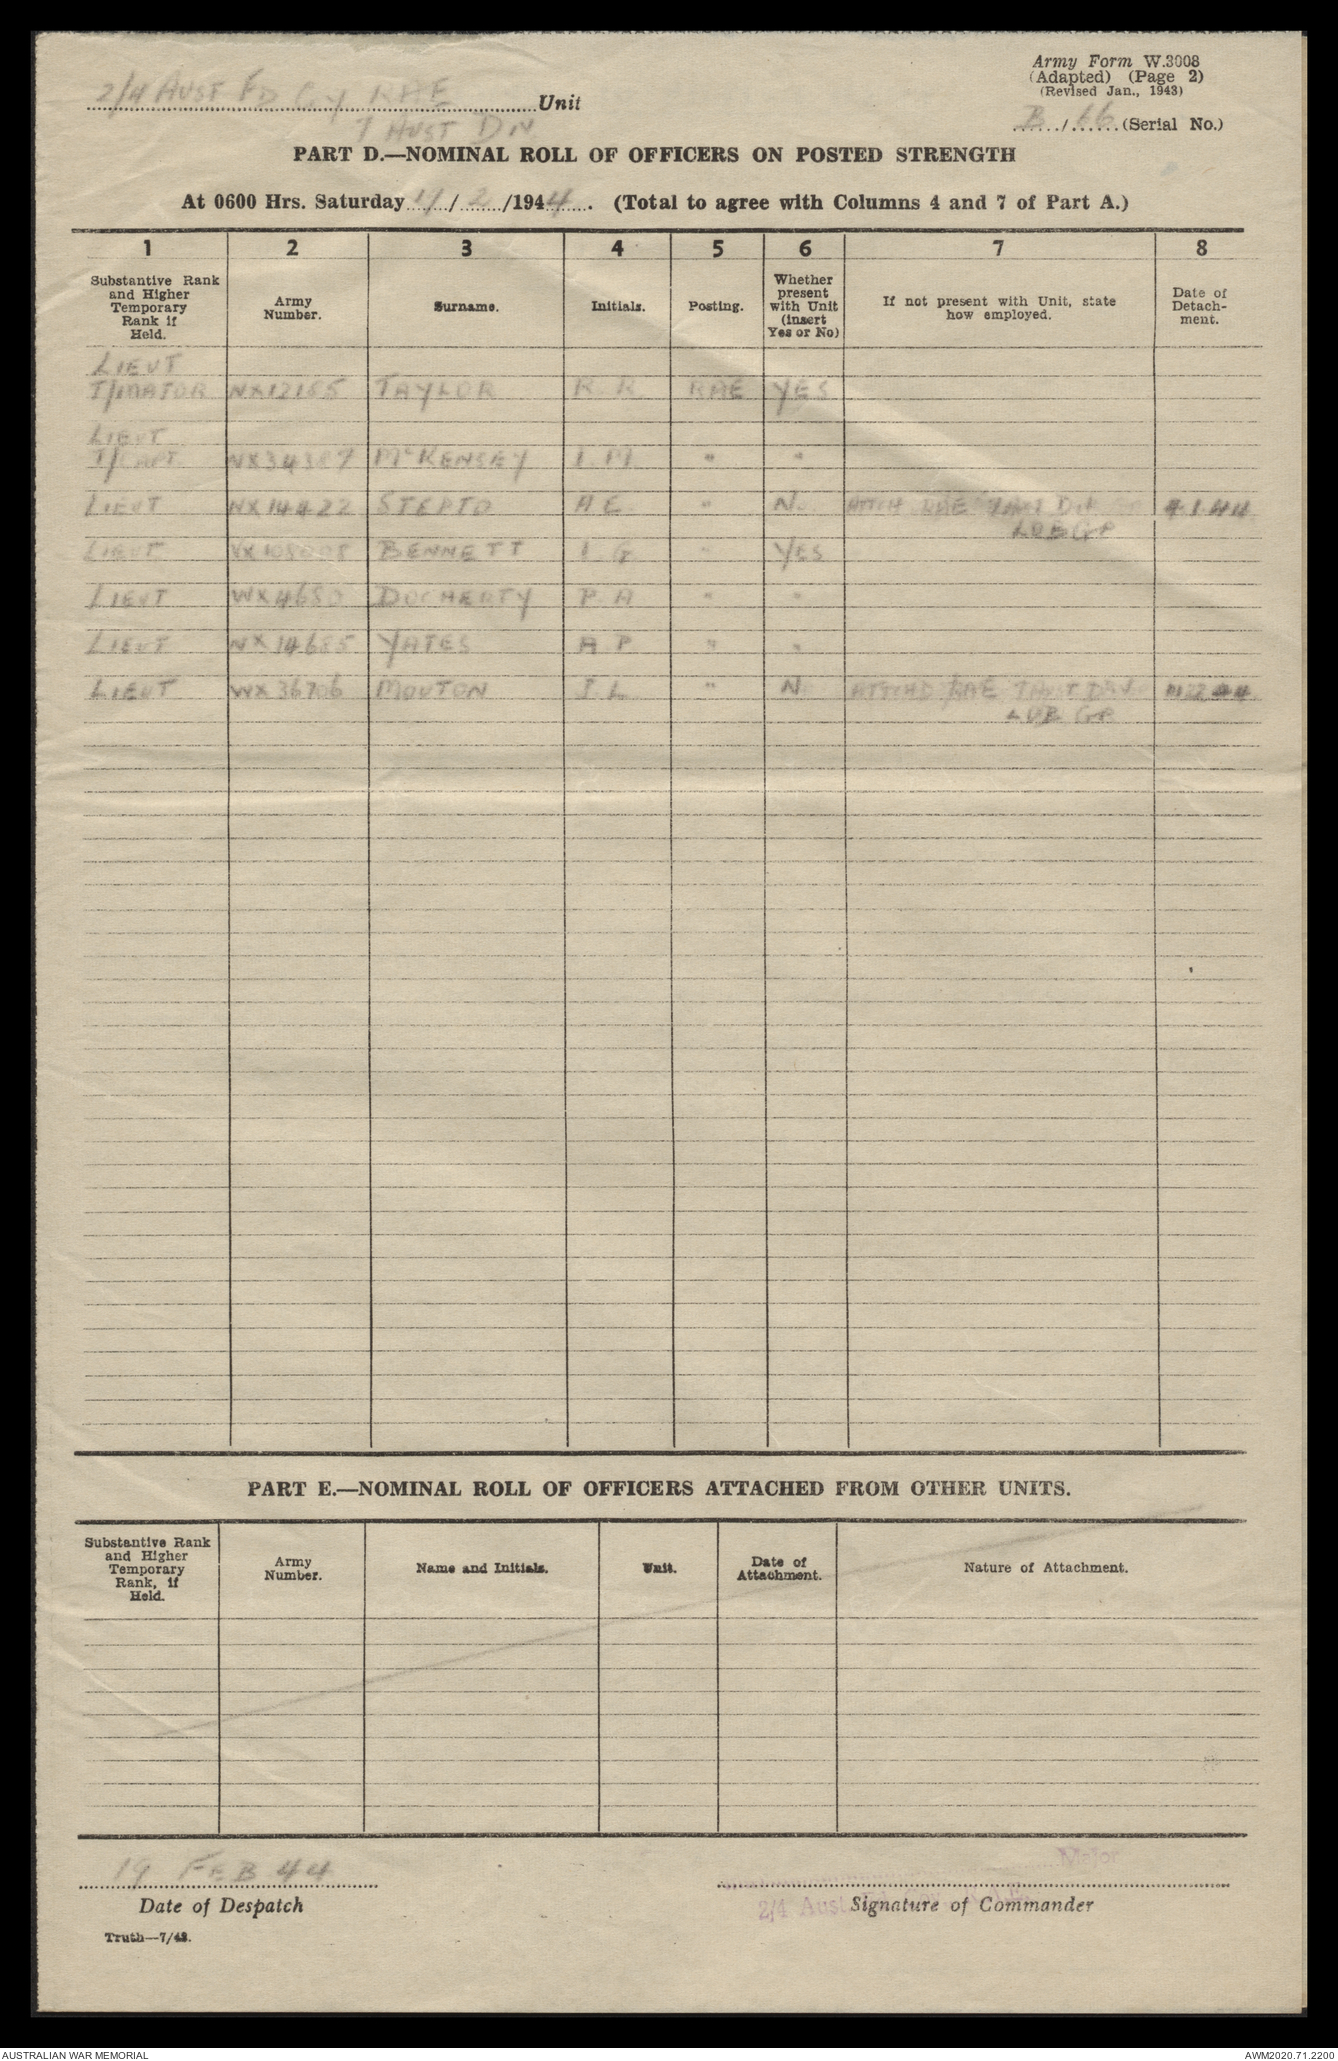 Army Form W.3008
(Adapted) (Page 2)
(Revised Jan., 1943)
2/4 AUST FD Cy RAE Unit
7 AUST DN
B / 66 (Serial No.)
PART D.—NOMINAL ROLL OF OFFICERS ON POSTED STRENGTH
At 0600 Hrs. Saturday / 2 /1944. (Total to agree with Columns 4 and 7 of Part A.)
1 2 3 4 5 6 7 8
Substantive Rank and Higher Temporary Rank if Held. Army Number. Surname. Initials. Posting. Whether present with Unit (insert Yes or No) If not present with Unit, state how employed. Date of Detach-ment.
LIEUT
T/MAJOR NX12155 TAYLOR R.R RAE YES
LIEUT
T/CAPT. NX34387 McKENSEY I.M. " "
LIEUT NX14422 STEPTO A E. " N. ATTCH RAE 7 AUST DIV 9.1.44
LOB GP
LIEUT BENNETT I G " YES
LIEUT WX4650 DOCHERTY P.A " "
LIEUT NX14685 YATES A P " "
LIEUT WX36706 MOUTON J.L " N. ATTCHD RAE 7 AUST DIV
LOB GP
PART E.—NOMINAL ROLL OF OFFICERS ATTACHED FROM OTHER UNITS.
Substantive Rank and Higher Temporary Rank, if Held. Army Number. Name and Initials. Unit. Date of Attachment. Nature of Attachment.
19 FEB 44
Major
Date of Despatch
2/4 Aust
Signature of Commander
Truth—7/43.
AUSTRALIAN WAR MEMORIAL
AWM2020.71.2200